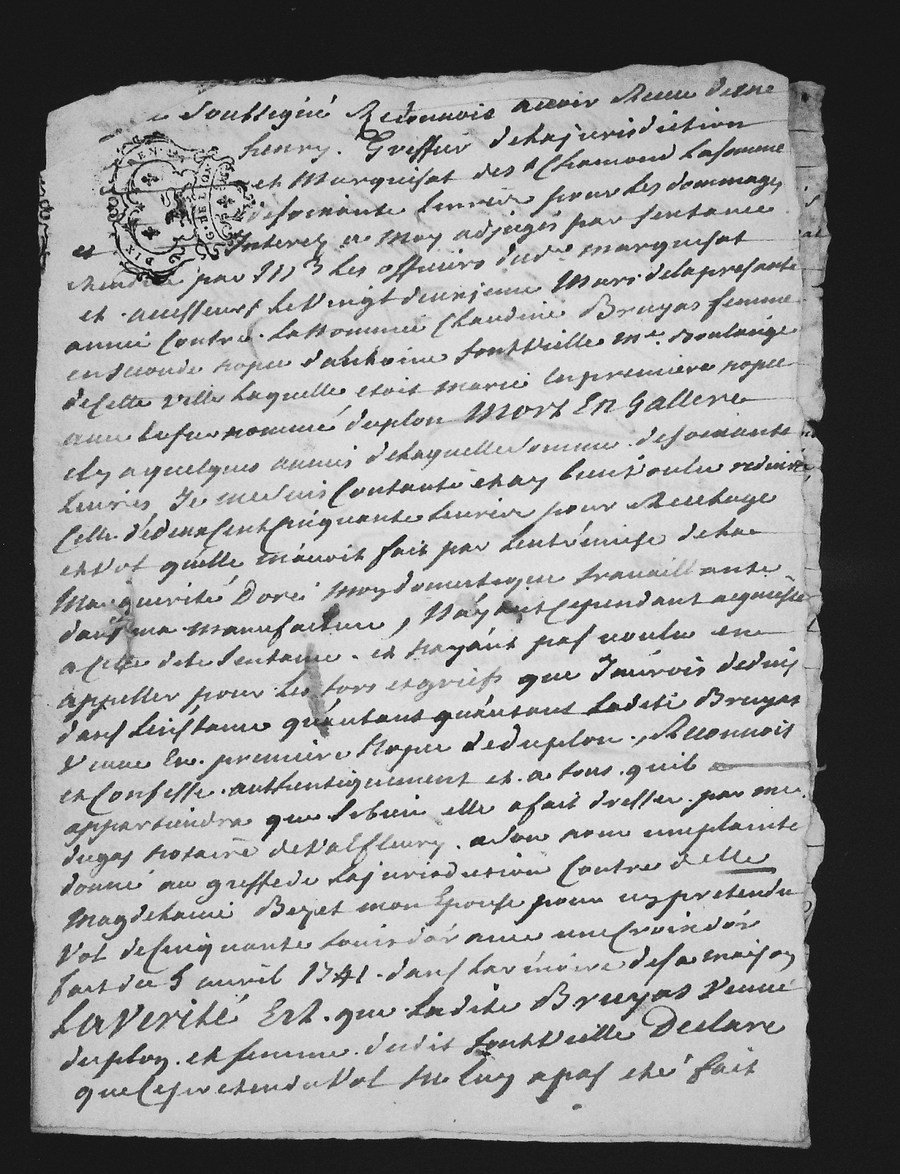 Soubsigné Reconnois avoir Receu de me
henry. Greffier de la jurisdiction
et Marquisat de st Chamond la somme
de soixante Livres pour les dommages
et Interez a Moy adjugés par sentence
Rendue par Mrs Les officiers dudt marquisat
et assesseurs Le Vingt deuxieme Mars de la presante
année Contre La Nommée Claudine Bruyas femme
en seconde nopce d'anthoine fontvielle me Boulangé
de Cette Ville Laquelle etoit marié En premiere nopce
avec Le feu nommé duplon Mort En Gallere
il y a quelques années de Laquelle somme de soixante
Livres Je me suis Contanté et ay bient voulu reduire
Celle de deux Cent Cinquante Livres pour Recellage
et Vol quelle m'avoit fait par L'entremise de La
Marguerite Doré Moy domestique travaillante
dans ma Manufacture, N'ayant Cependant acquiessé
a Cette dite sentance et Nayant pas voulu en
appeller pour Les tors et griefs que J'aurois deduis
dans L'instance quautant quautant Ladite Bruyas
Veuve En premiere Nopce de duplon, Reconnoit
et Confesse authentiquement et a tous quil
appartiendra que sibien elle a fait dresser par me
dugas Notaire de Valfleury a son nom une plainte
donné au greffe de La jurisdiction Contre delle
Magdelaine Bezet mon Epouse pour un pretendu
Vol de Cinquante Louis d'or avec une Croix d'or
fait du 5 avril 1741 dans L'armoire de sa maison
La Verité Est que Ladite Bruyas Veuve
duplon et femme dudit fontvielle Declare
que Ce pretendu Vol Ne Luy a pas eté fait
G. DE LION
DIX DEN.